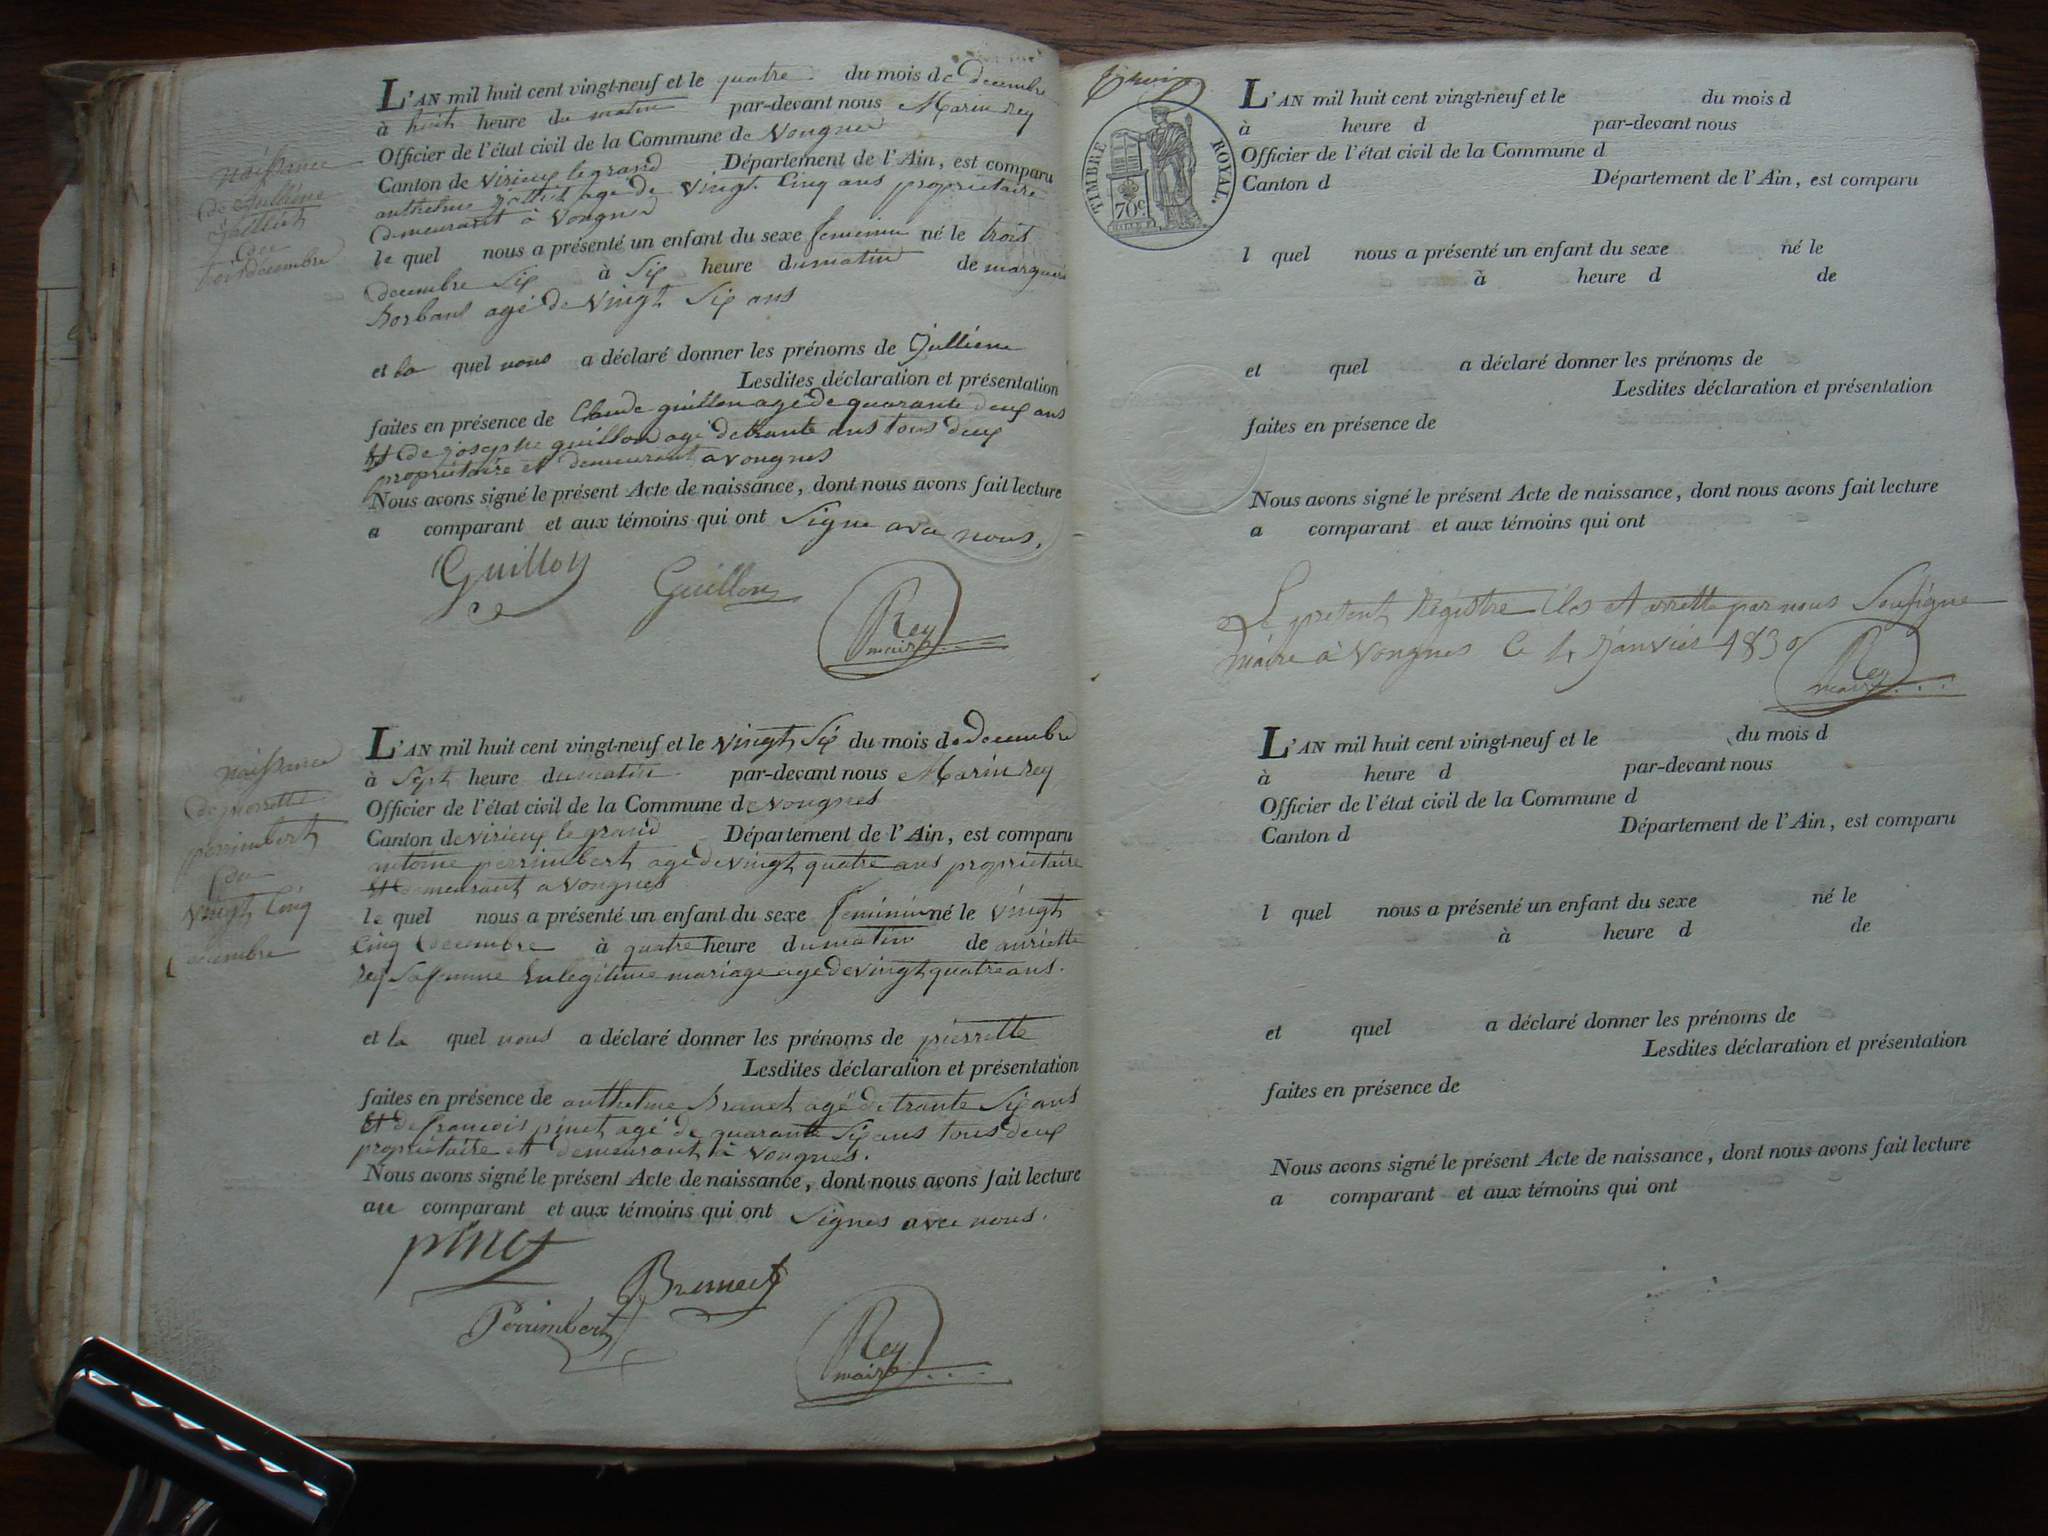 L'AN mil huit cent vingt-neuf et le quatre du mois de decembre
à huit heure du matin par-devant nous Marin rey
Officier de l'état civil de la Commune de Vongnes
Canton de virieux legrand Département de l'Ain, est comparu
anthelme agé de vingt Cinq ans proprietaire
demeurant à Vongnes
le quel nous a présenté un enfant du sexe feminin né le trois
decembre Six à Six heure du matin de
Borbant agé de Vingt Six ans
et la quel nous a déclaré donner les prénoms de Jullienne
Lesdites déclaration et présentation
faites en présence de Claude guillon age de quarante deux ans
Et de josephe guillon agé de trante ans tous deux
propriétaire et demeurant a vongnes
Nous avons signé le présent Acte de naissance, dont nous avons fait lecture
a comparant et aux témoins qui ont Signe avec nous.
Guillon Guillon Rey
maire
naissance
de Jullienne
du
trois décembre
L'AN mil huit cent vingt-neuf et le vingt Six du mois de decembre
à Sept heure du matin par-devant nous Marin rey
Officier de l'état civil de la Commune de vongnes
Canton de virieux le grand Département de l'Ain, est comparu
antoine perrimbert agé de vingt quatre ans propriétaire
Et demeurant a vongnes
le quel nous a présenté un enfant du sexe feminin né le vingt
cinq decembre à quatre heure du matin de anriette
rey Sa femme En legitime mariage age de vingt quatre ans.
et la quel nous a déclaré donner les prénoms de pierrette
Lesdites déclaration et présentation
faites en présence de anthelme Brunet agé de trante Six ans
Et de francois pinet agé de quarante Six ans tous deux
propriétaire et demeurant à vongnes.
Nous avons signé le présent Acte de naissance, dont nous avons fait lecture
au comparant et aux témoins qui ont Signes avec nous.
pinet
Brunet
Perrimbert
Rey
maire
naissance
de pierrette
perrimbert
du
vingt Cinq
decembre
TIMBRE ROYAL.
70c
L'AN mil huit cent vingt-neuf et le du mois d
à heure d par-devant nous
Officier de l'état civil de la Commune d
Canton d Département de l'Ain, est comparu
l quel nous a présenté un enfant du sexe né le
à heure d de
et quel a déclaré donner les prénoms de
Lesdites déclaration et présentation
faites en présence de
Nous avons signé le présent Acte de naissance, dont nous avons fait lecture
a comparant et aux témoins qui ont
Le present Régistre Clos et arretté par nous Sousigne
Maire a Vongnes le 1 Janvier 1830
Rey
maire
L'AN mil huit cent vingt-neuf et le du mois d
à heure d par-devant nous
Officier de l'état civil de la Commune d
Canton d Département de l'Ain, est comparu
l quel nous a présenté un enfant du sexe né le
à heure d de
et quel a déclaré donner les prénoms de
Lesdites déclaration et présentation
faites en présence de
Nous avons signé le présent Acte de naissance, dont nous avons fait lecture
a comparant et aux témoins qui ont